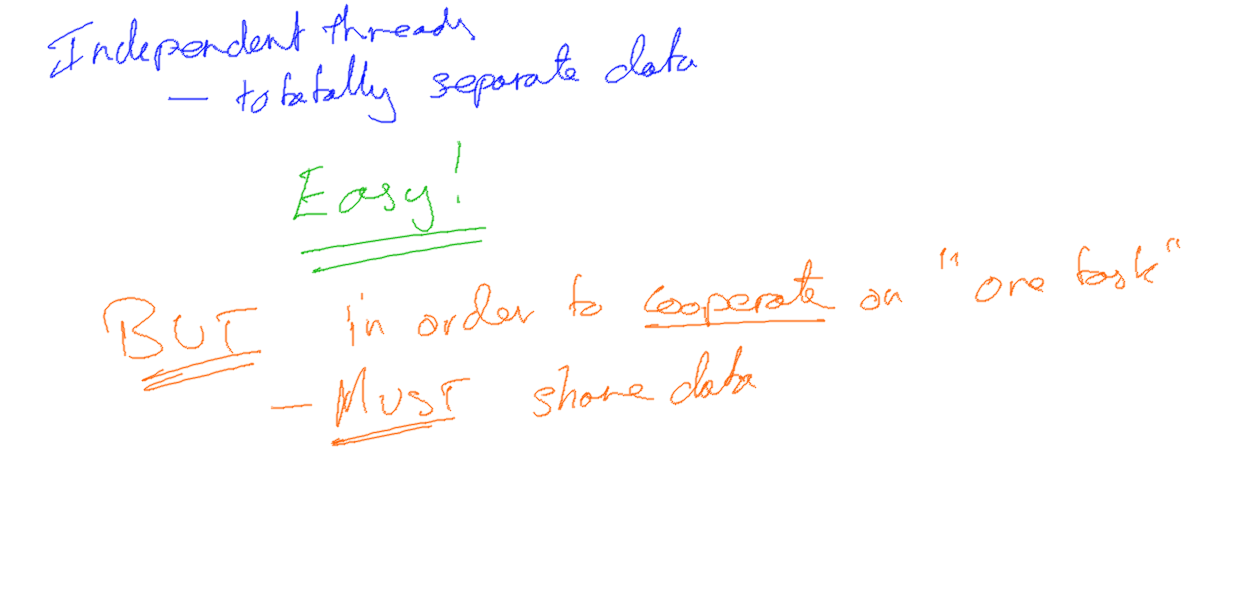 Independent threads
— totatally separate data
Easy!
BUT in order to cooperate on "one task"
— MUST share data